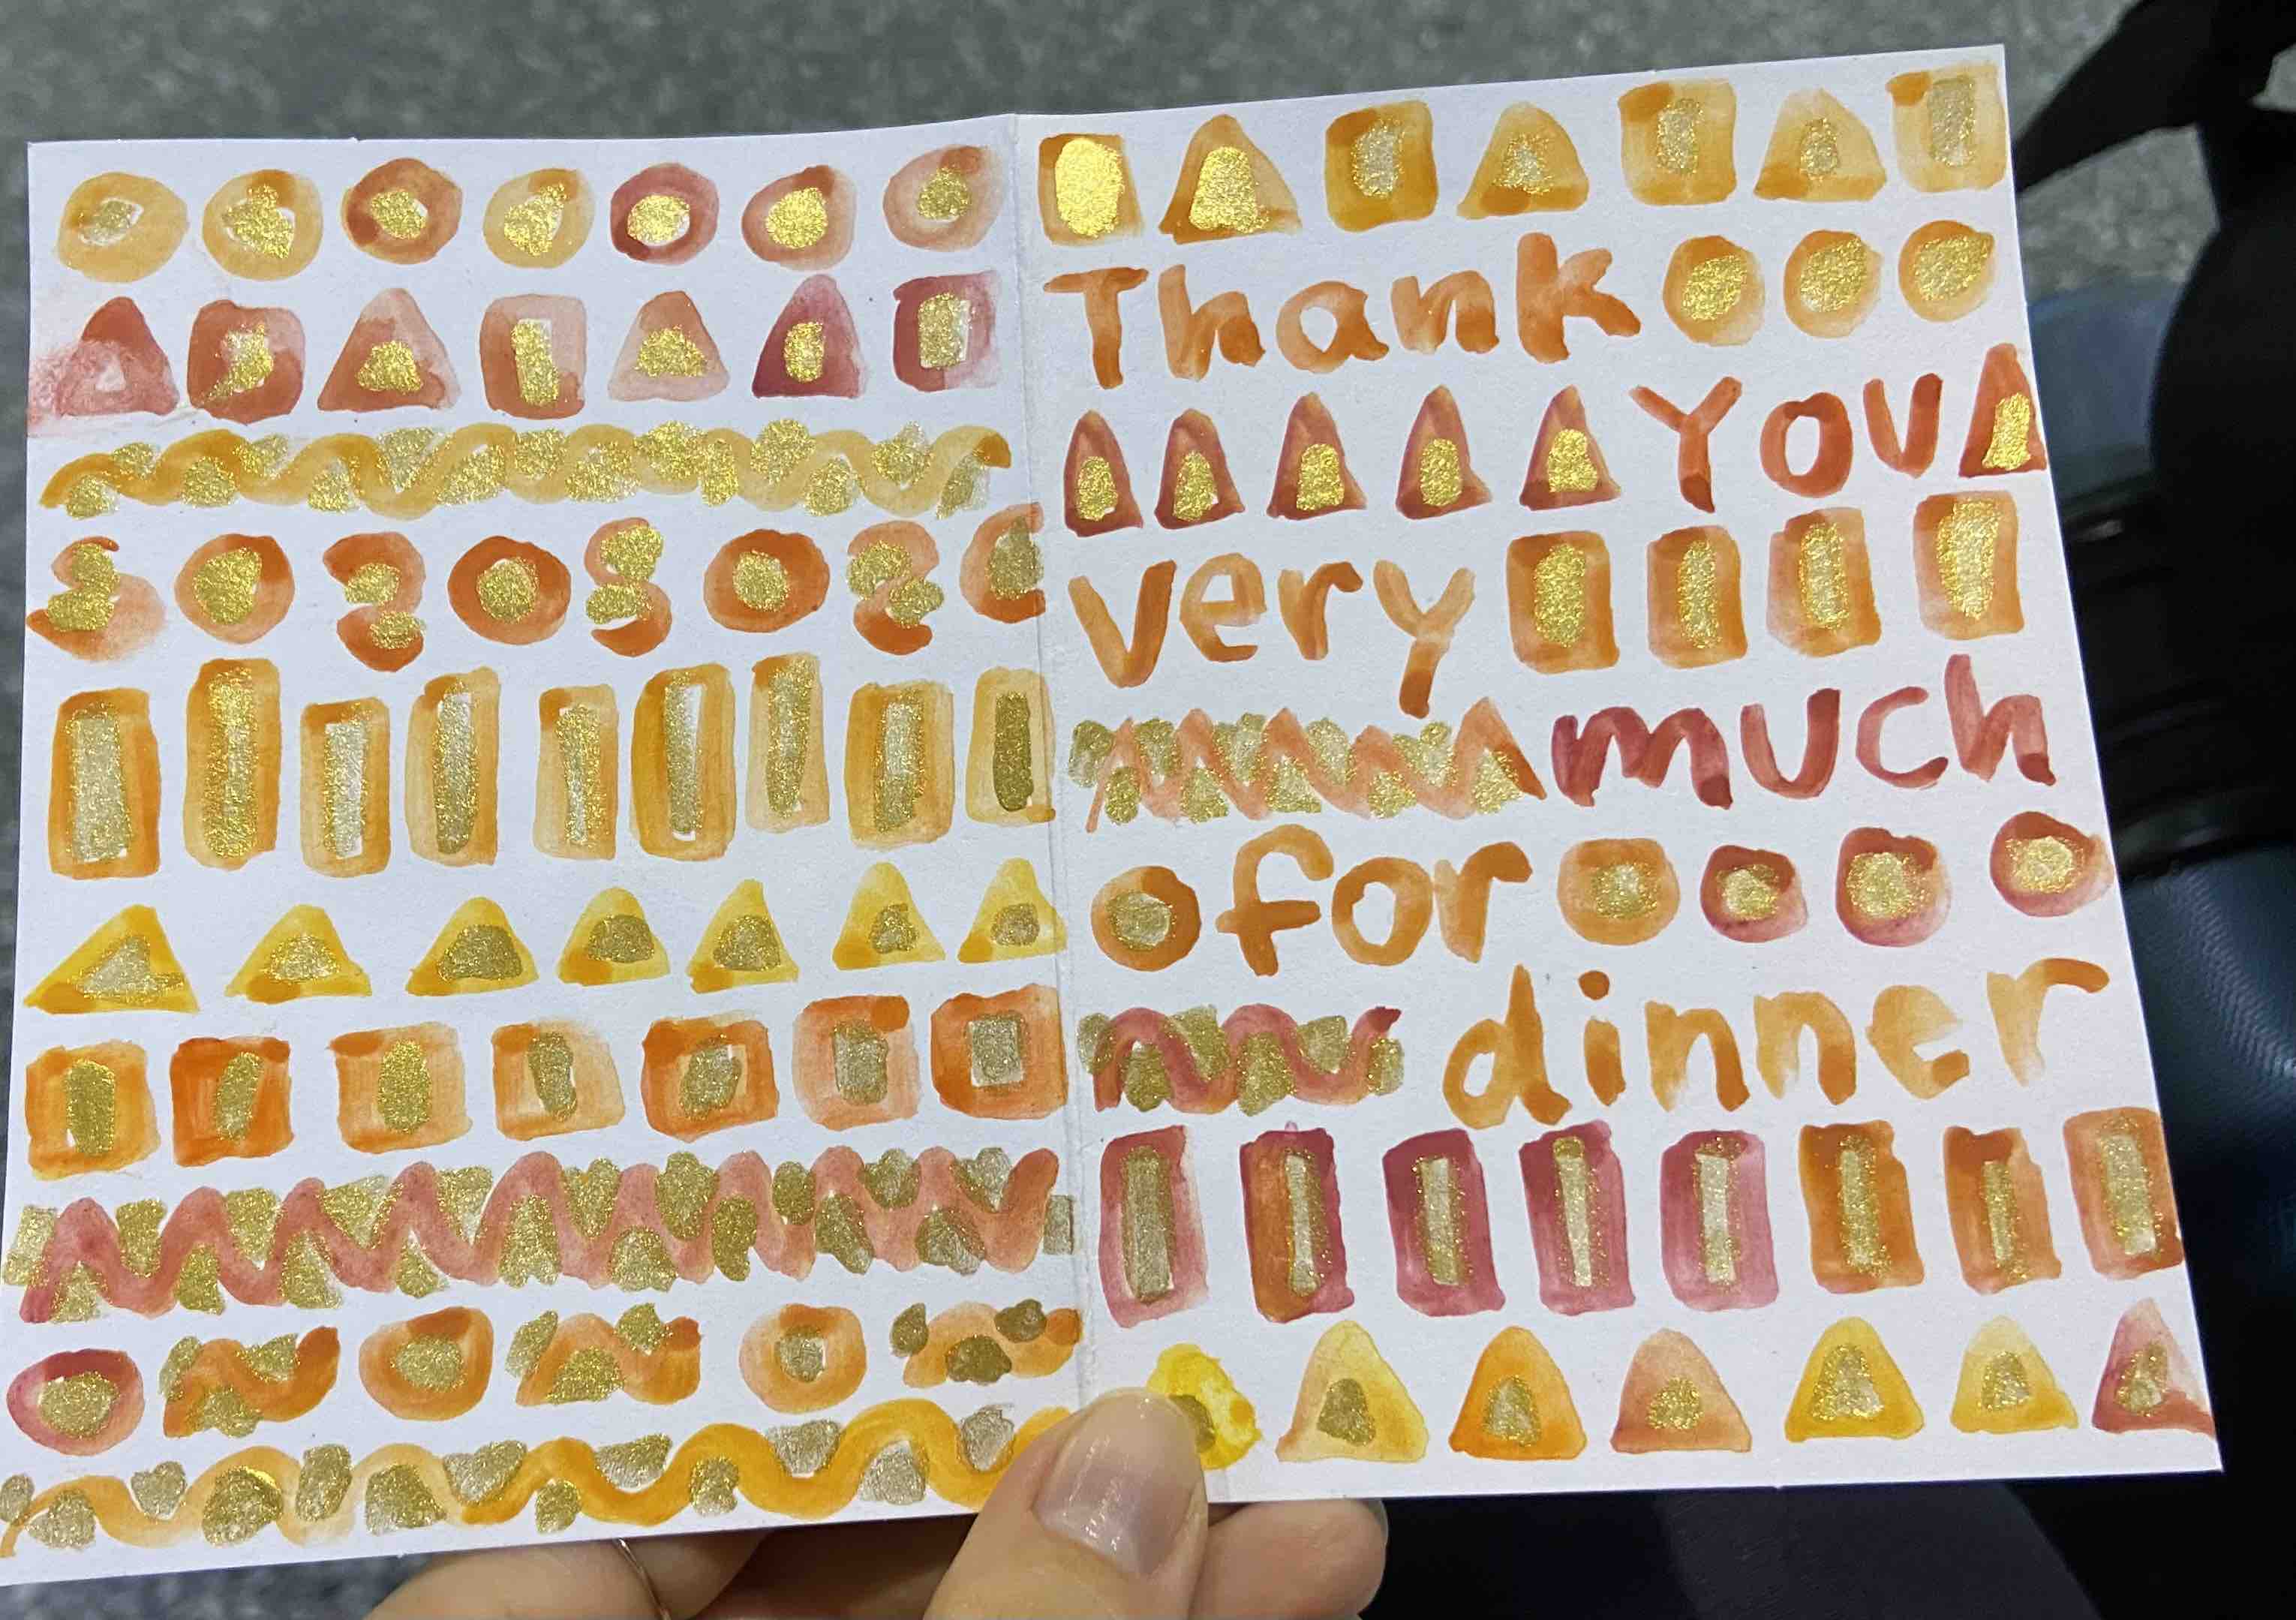 Thank
you
very
much
for
dinner